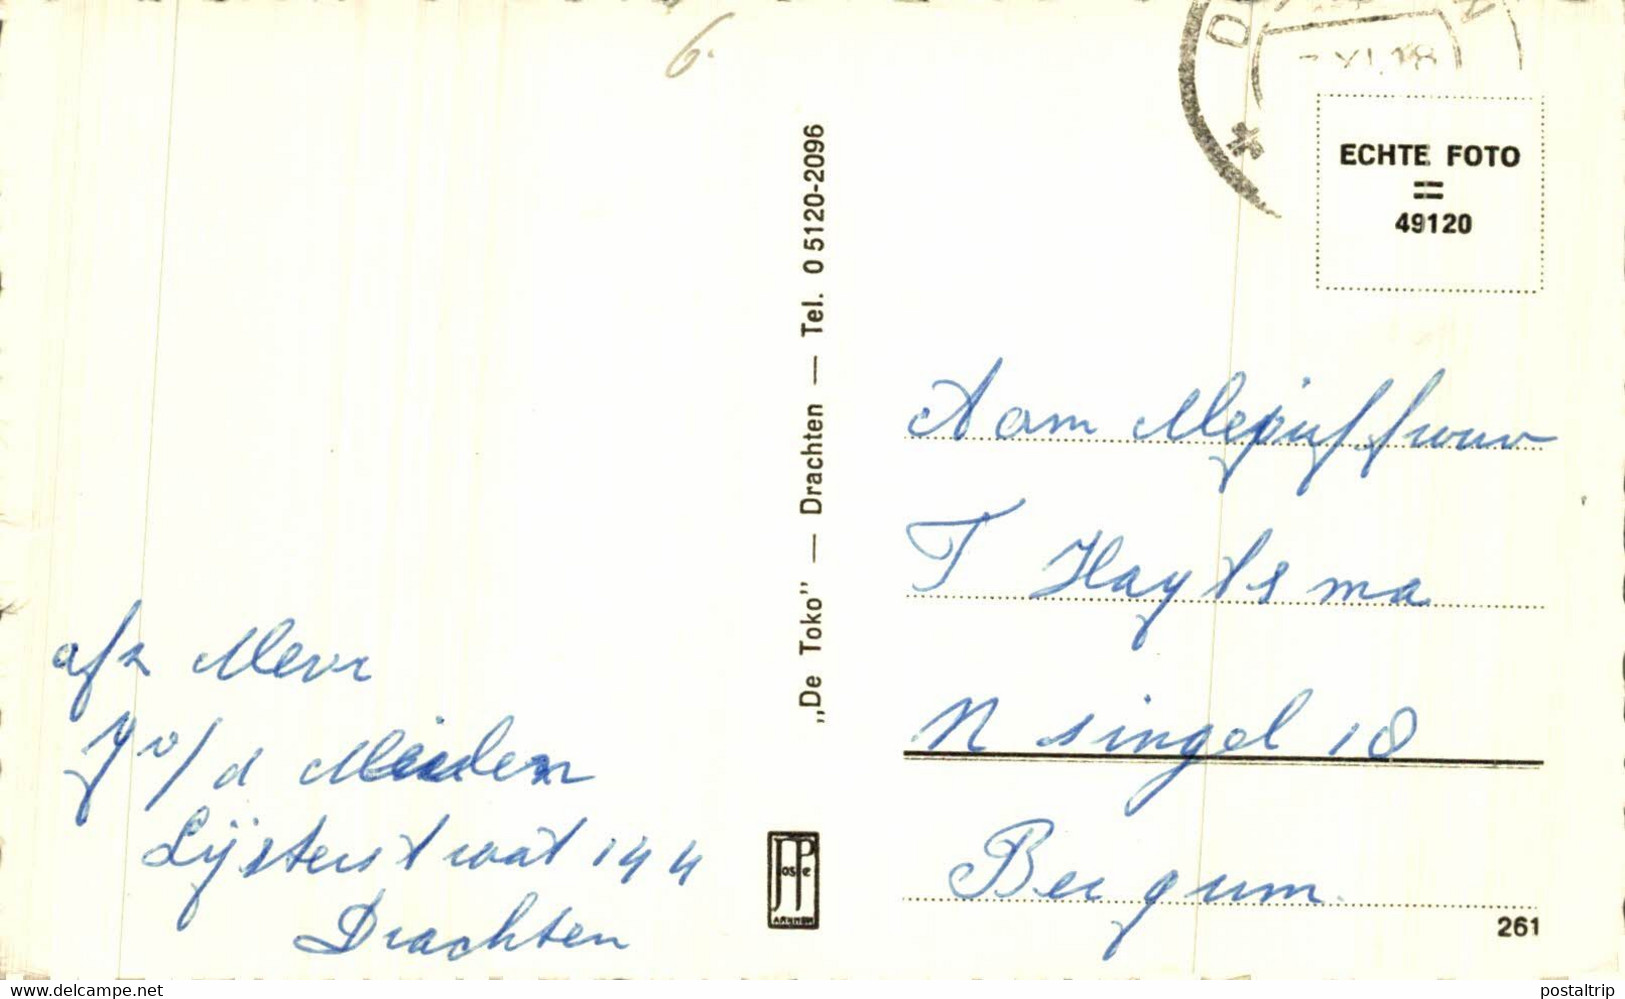 6.
- XI. 18
ECHTE FOTO
=
49120
„De Toko” — Drachten — Tel. 0 5120-2096
Aam Mejuffrouw
T Haytsma
N singel 18
Bergum
afz Mevr
J v/d Meulen
Lijsterstraat 144
Drachten
JosPe
ARNHEM
261
www.delcampe.net
postaltrip